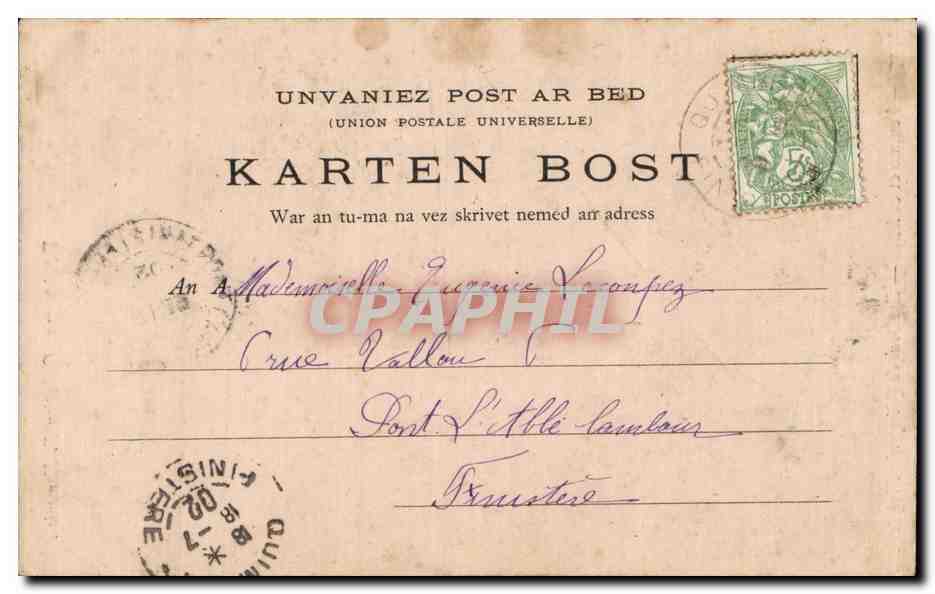 UNVANIEZ POST AR BED
(UNION POSTALE UNIVERSELLE)
KARTEN BOST
War an tu-ma na vez skrivet nemed arr adress
5c
POSTES
An A. Mademoiselle Eugenie
CPAPHIL
rue
Pont L'Abbé Lambour
Finistère
FINISTERE
7
02
QUIM